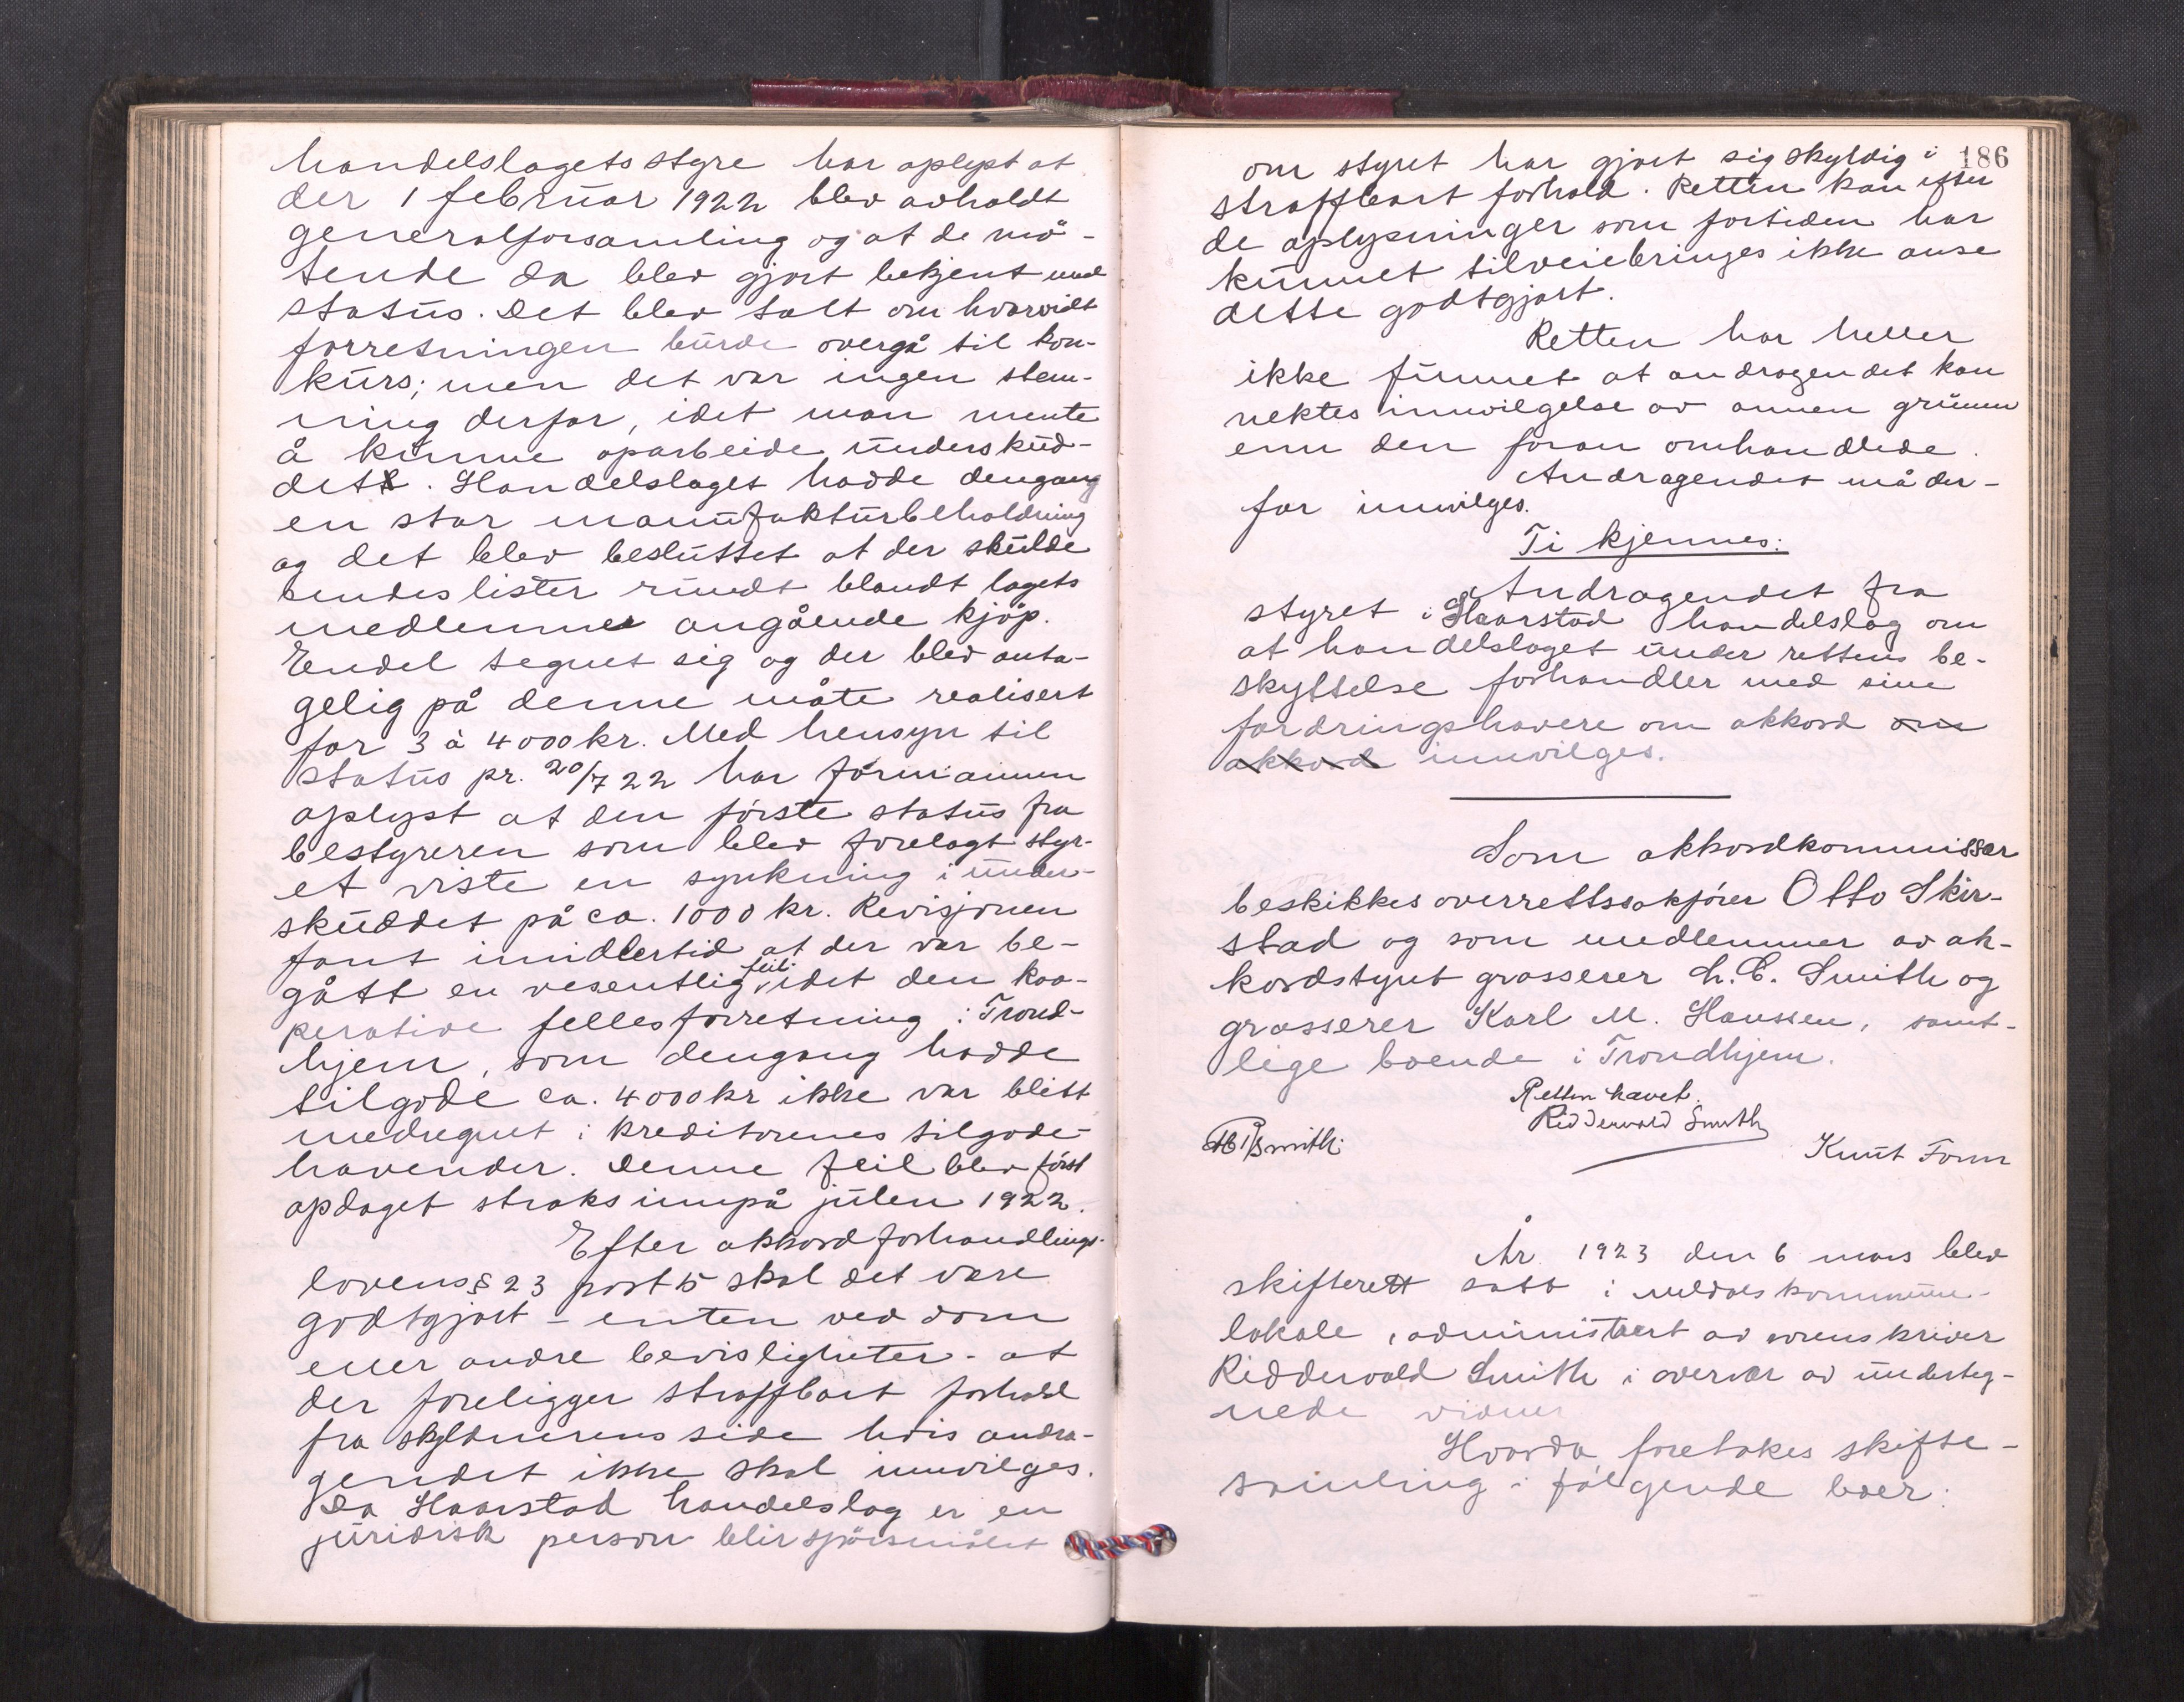 handelslagets styre har oplyst at
der 1 februar 1922 blev avholdt
generalforsamling og at de mö-
tende da blev gjort bekjent med
status. Det blev talt om hvorvidt
forretningen burde overgå til kon-
kurs; men det var ingen stem-
ning derfor, idet man mente
å kunne oparbeide underskud-
det. Handelslaget hadde dengang
en stor manufakturbeholdning
og det blev besluttet at der skulde
sendes lister rundt blandt lagets
medlemmer angående kjöp.
Endel tegnet sig og der blev anta-
gelig på denne måte realisert
for 3 à 4000 kr. Med hensyn til
status pr. 20/7 22 har formannen
oplyst at den förste status fra
bestyreren som blev forelagt styr-
et viste en synkning i under-
skuddet på ca. 1000 kr. Revisjonen
fant imidlertid at der var be-
gått en vesentlig feil, idet den koo-
perative fellesforretning i Trond-
hjem, som dengang hadde
tilgode ca. 4000 kr ikke var blitt
medregnet i kreditorenes tilgode-
havender. Denne feil blev först
opdaget straks innpå julen 1922.
Efter akkordforhandlings-
lovens § 23 post 5 skal det være
godtgjort - enten ved dom
eller andre bevisligheter - at
der foreligger straffbart forhold
fra skyldnerens side hvis andra-
gendet ikke skal innvilges.
Da Haarstad handelslag er en
juridisk person blir spörsmålet
186
om styret har gjort sig skyldig i
straffbart forhold. Retten kan efter
de oplysninger som fortiden har
kunnet tilveiebringes ikke anse
dette godtgjort.
Retten har heller
ikke funnet at andragendet kan
nektes innvilgelse av annen grunn
enn den foran omhandlede.
Andragendet må der-
for innvilges.
Ti kjennes:
Andragendet fra
styret i Haarstad handelslag om
at handelslaget under rettens be-
skyttelse forhandler med sine
fordringshavere om akkord om
akkord innvilges.
Som akkordkommissær
beskikkes overrettssakförer Otto Skir-
stad og som medlemmer av ak-
kordstyret grosserer L. C. Smith og
grosserer Karl M. Hanssen, samt-
lige boende i Trondhjem.
Retten hævet.
Ridderwold Smith
Smith.
Knut Form
År 1923 den 6 mars blev
skifterett satt i meldals kommune-
lokale, administrert av sorenskriver
Ridderwold Smith i overvær av underteg-
nede vidner
Hvorda foretokes skifte-
samling i fölgende boer: